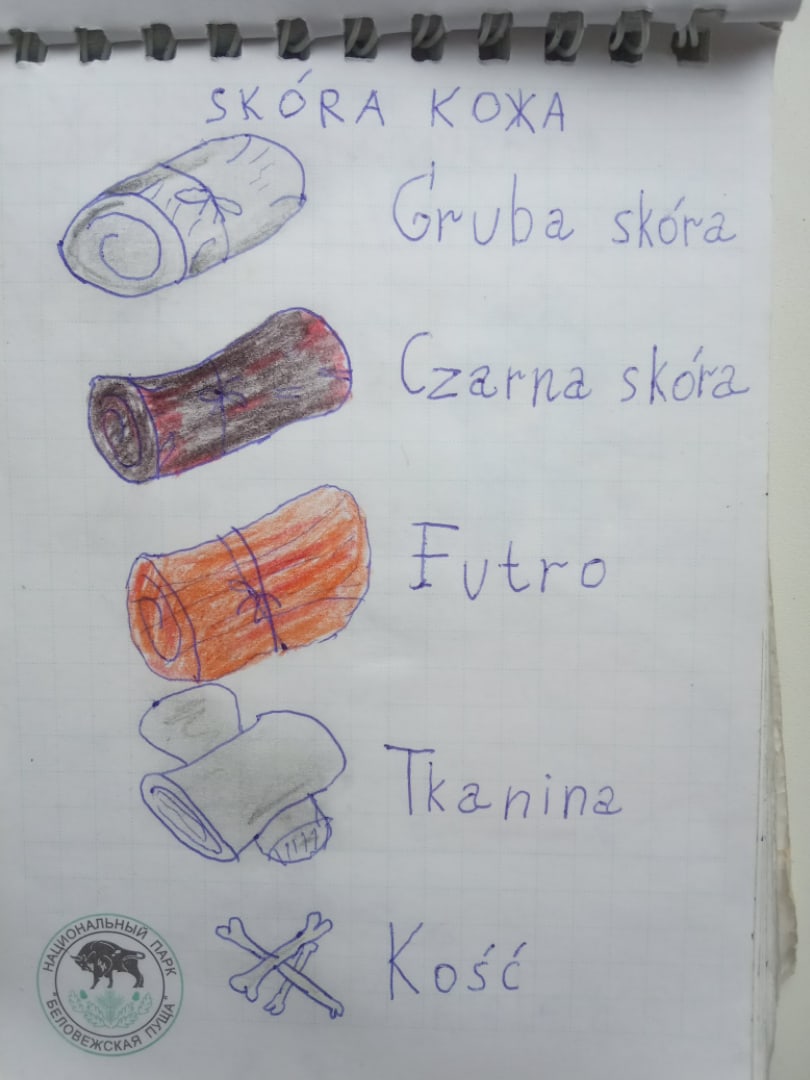 SKÓRA КОЖА
Gruba skóra
Czarna skóra
Futro
Tkanina
Kość
НАЦИОНАЛЬНЫЙ ПАРК
"БЕЛОВЕЖСКАЯ ПУЩА"